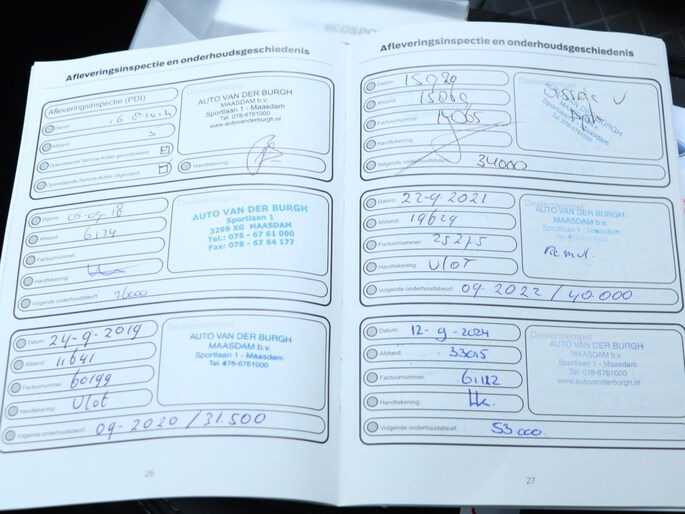 ECOSPO
Afleveringsinspectie en onderhoudsgeschiedenis
Afleveringsinspectie (PDI)
Datum:
Afstand: 5
Openstaande Service Acties gecontroleerd:
Openstaande Service Acties uitgevoerd:
AUTO VAN DER BURGH
MAASDAM b.v.
Sportlaan 1 - Maasdam
Tel. 078-6761000
www.autovanderburgh.nl
Handtekening:
Datum: 05-09-18
Afstand: 6134
Factuurnummer:
Handtekening:
Volgende onderhoudsbeurt: 26000
Dealerstempel
AUTO VAN DER BURGH
Sportlaan 1
3299 XG MAASDAM
Tel.: 078 - 67 61 000
Fax: 078 - 67 64 177
Datum: 24-9-2019
Afstand: 11641
Factuurnummer: 60199
Handtekening: Vlot
Volgende onderhoudsbeurt: 09-2020 / 31.500
Dealerstempel
AUTO VAN DER BURGH
MAASDAM b.v.
Sportlaan 1 - Maasdam
Tel. 078-6761000
26
Afleveringsinspectie en onderhoudsgeschiedenis
Datum: 15920
Afstand: 15069
Factuurnummer: 14065
Handtekening:
Volgende onderhoudsbeurt: 34000
Datum: 22-9-2021
Afstand: 19629
Factuurnummer: 25275
Handtekening: Vlot
Volgende onderhoudsbeurt: 09-2022 / 40.000
Dealerstempel
AUTO VAN DER BURGH
MAASDAM b.v.
Sportlaan 1 - Maasdam
Remvl.
Datum: 12-9-2024
Afstand: 33015
Factuurnummer: 61112
Handtekening:
Volgende onderhoudsbeurt: 53000
Dealerstempel
AUTO VAN DER BURGH
MAASDAM b.v.
Sportlaan 1 - Maasdam
Tel. 078-6761000
www.autovanderburgh.nl
27